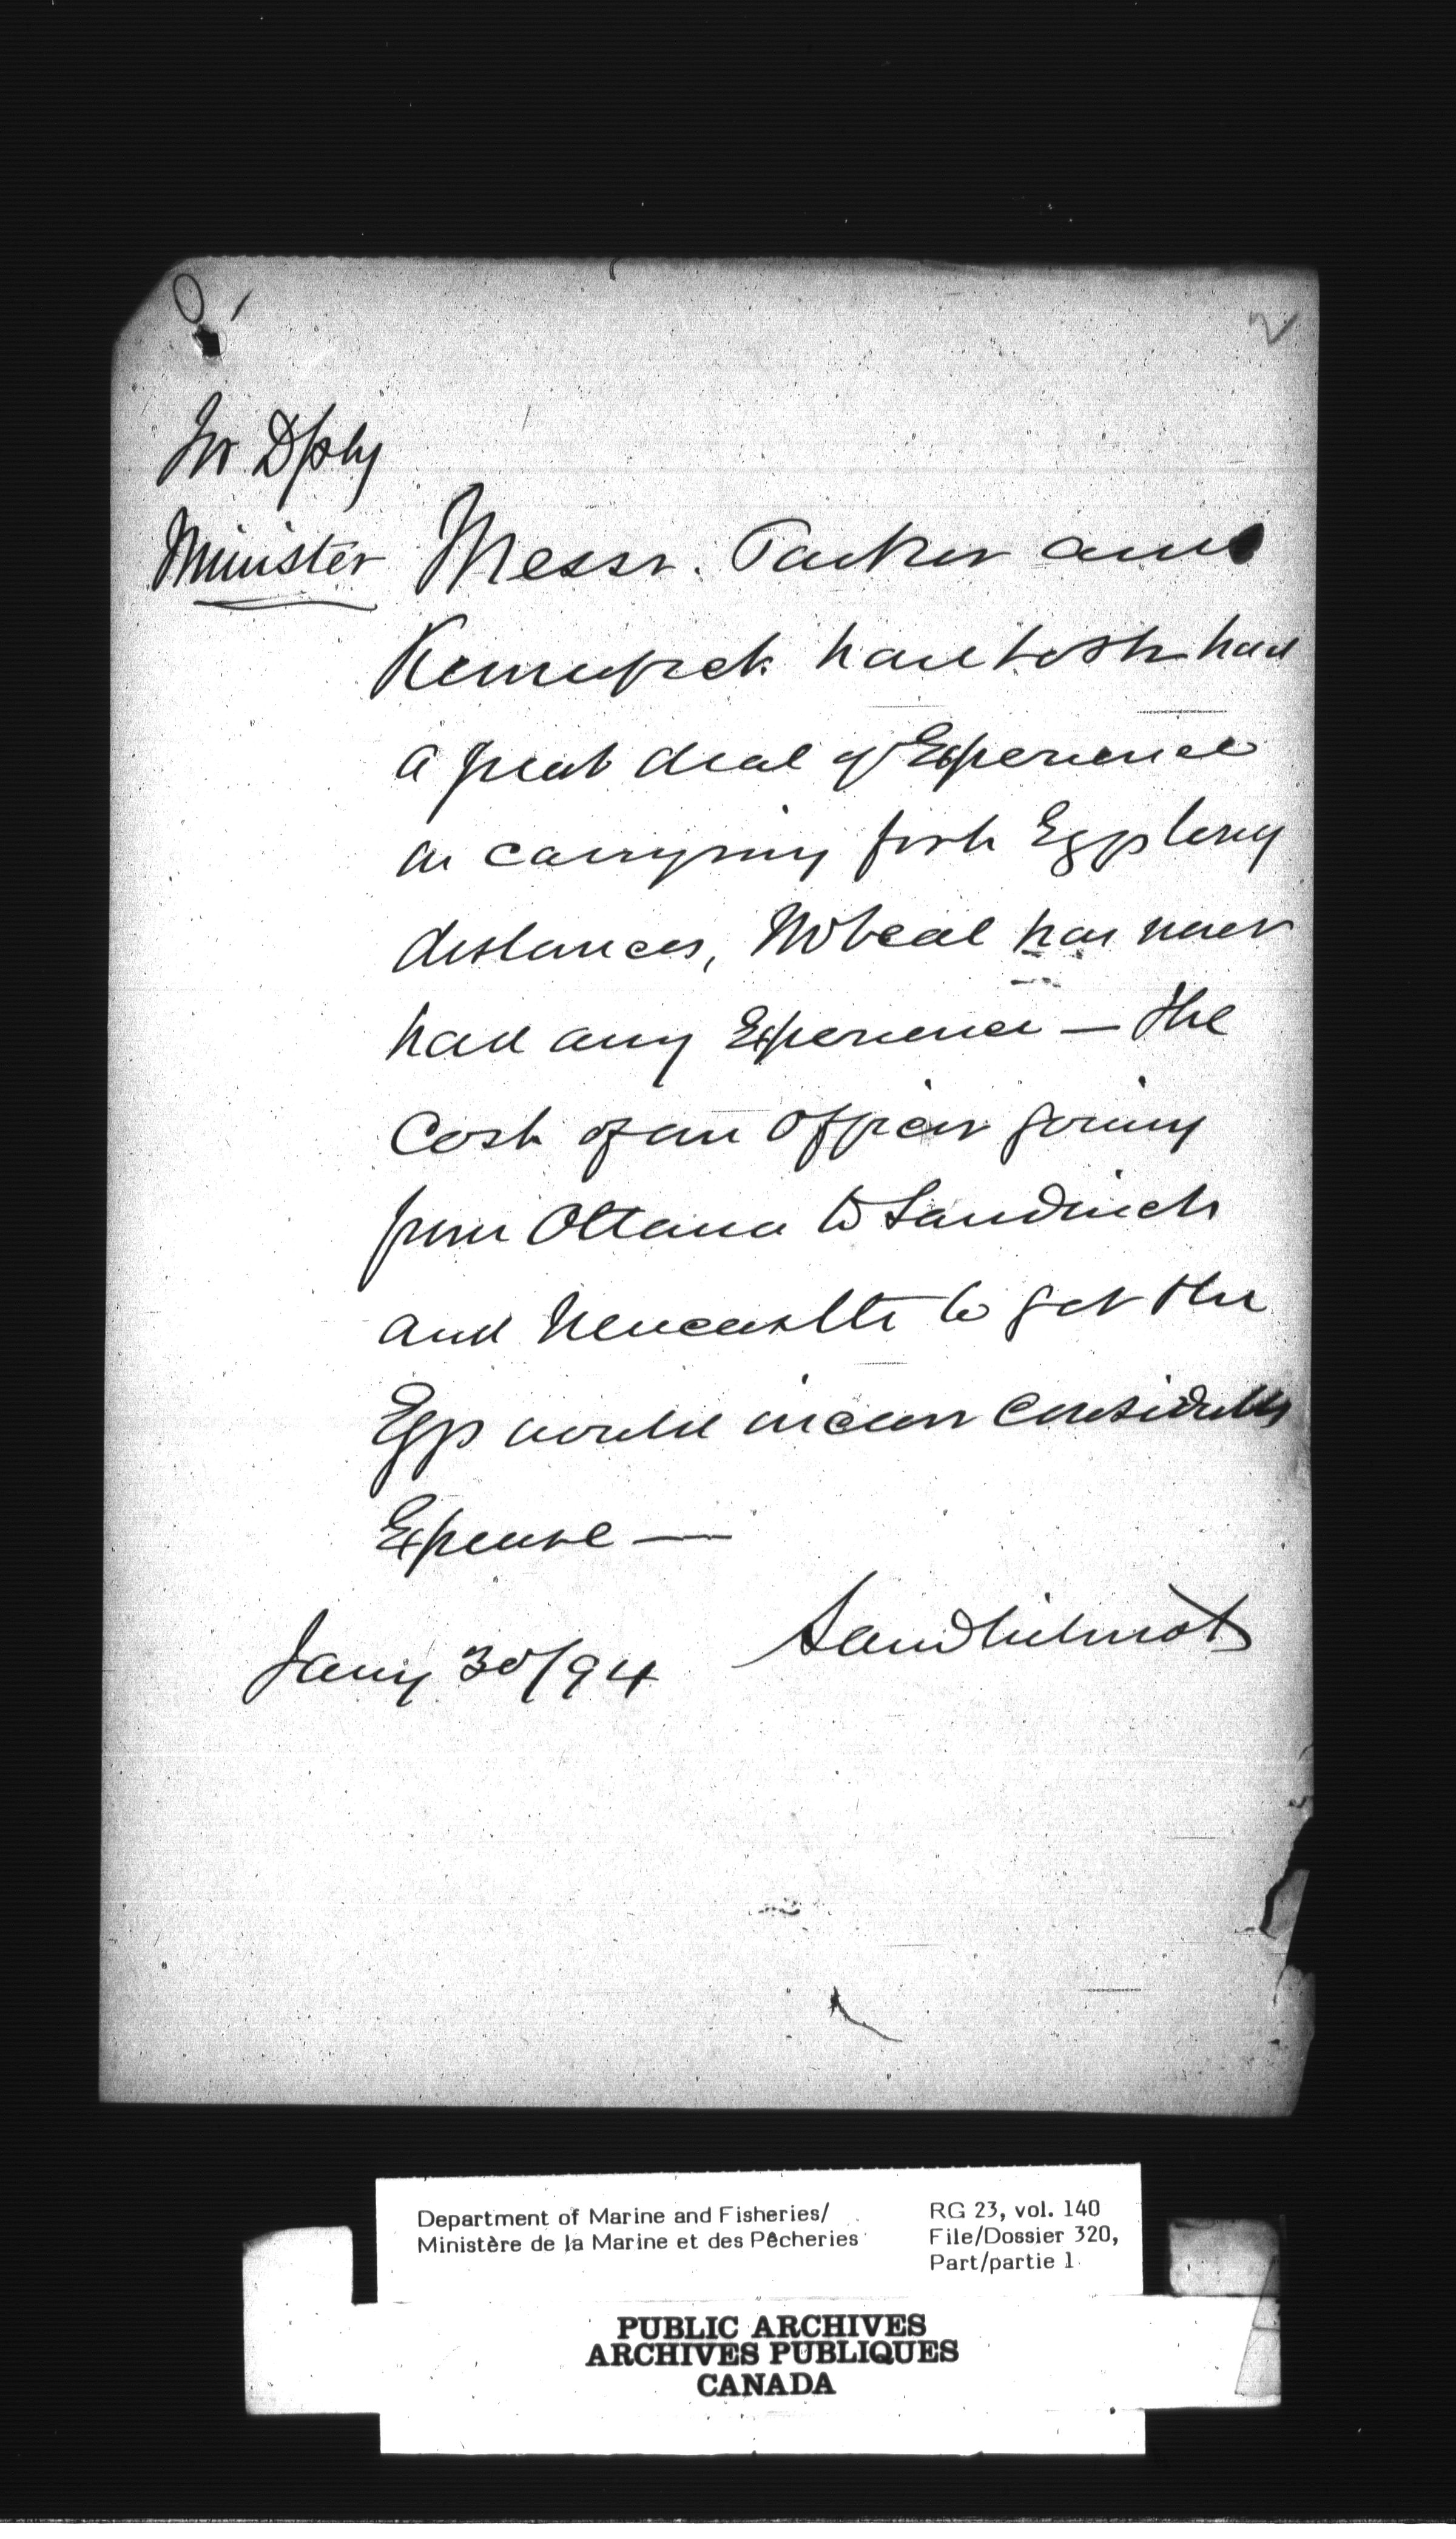 2
For Dpty
Minister
Messr. Parker and
have both had
a great deal of Experience
in carrying fish Eggs long
distances, has never
had any Experience — The
Cost of an Officer going
from Ottawa to Sandwich
and Newcastle to get the
Eggs would incur considerable
Expense —
Saml Wilmot
Jany 30/94
Department of Marine and Fisheries/
Ministère de la Marine et des Pêcheries
RG 23, vol. 140
File/Dossier 320,
Part/partie 1
PUBLIC ARCHIVES
ARCHIVES PUBLIQUES
CANADA